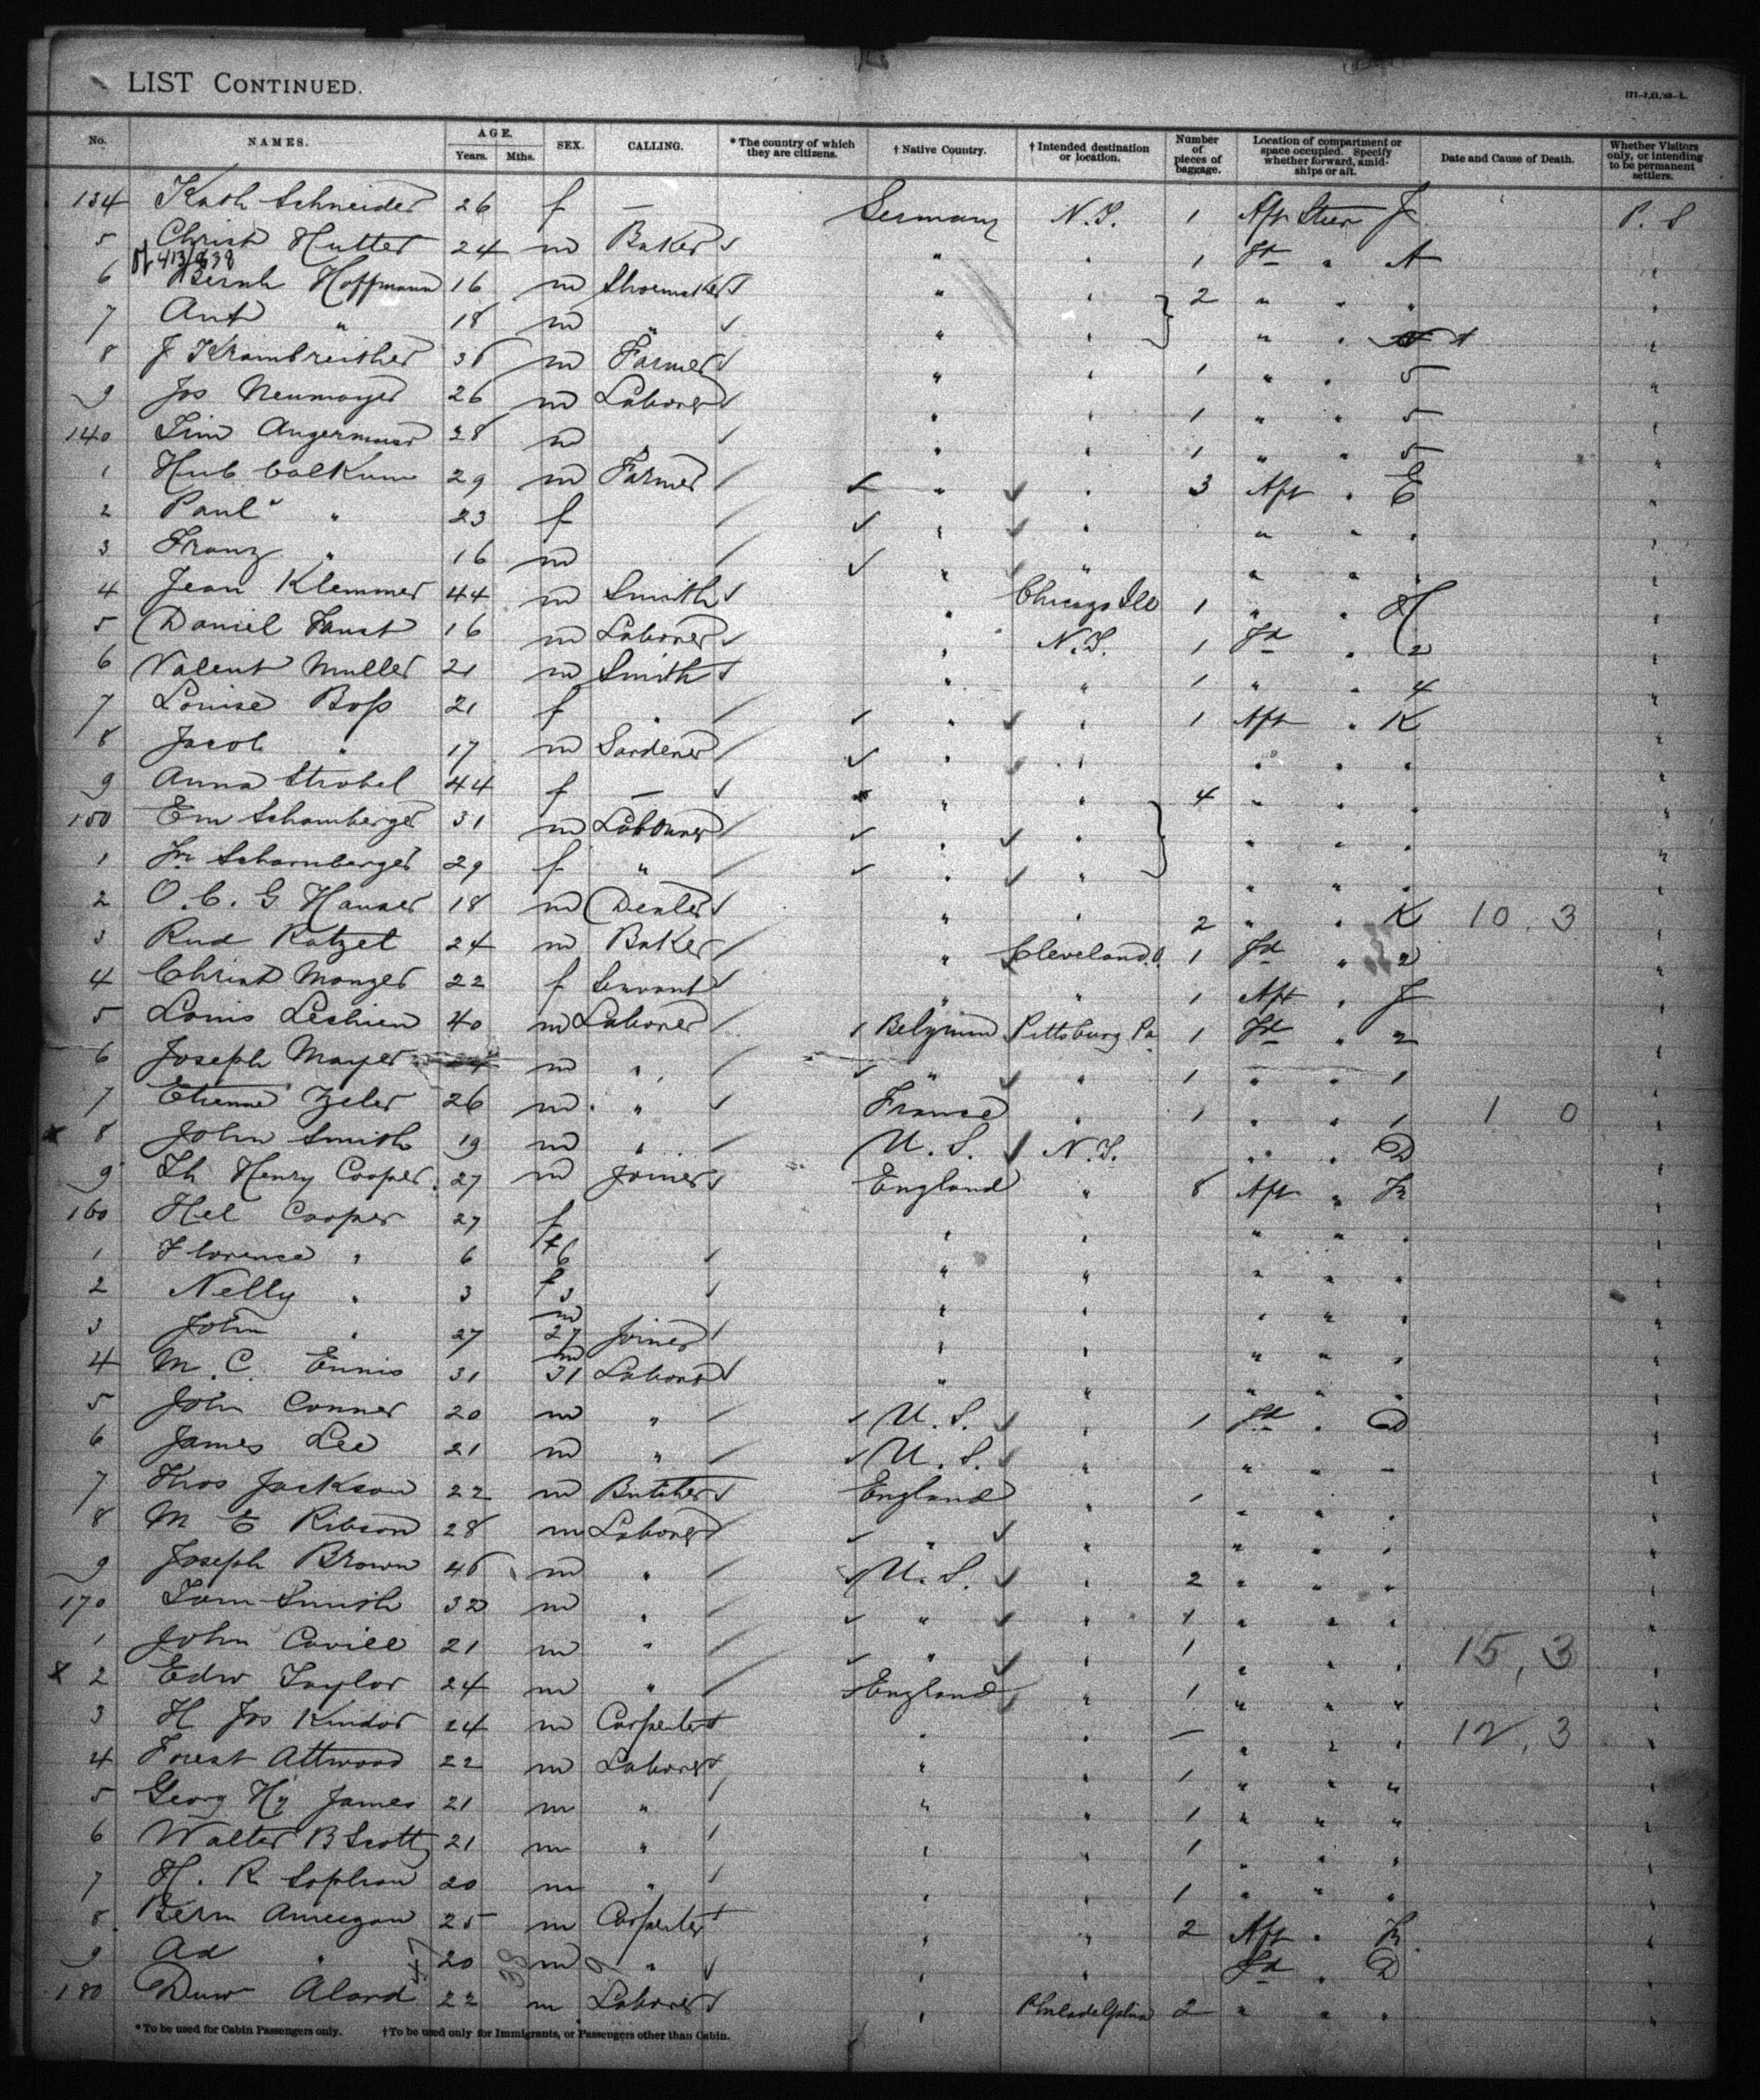 LIST CONTINUED.
No. NAMES. AGE. Years. Mths. SEX. CALLING. *The country of which they are citizens. †Native Country. †Intended destination or location. Number of pieces of baggage. Location of compartment or space occupied. Specify whether forward, amidships or aft. Date and Cause of Death. Whether Visitors only, or intending to be permanent settlers.
134 Kath Schneider 26 f — Germany N.Y. 1 Aft Steer J P. S
5 Christ Hutter 24 m Baker " 1 Fd " A "
6 Bernh Hoffmann 16 m Shoemaker " " 2 " " " "
7 Ant " 18 m " " " " " A "
8 J Krambreither 36 m Farmer " " 1 " " 5 "
9 Jos Neumayer 26 m Laborer " " 1 " " 5 "
140 Sim Angermaier 28 m " " " 1 " " 5 "
1 Hub Calkum 29 m Farmer " " 3 Aft " E "
2 Paul " 23 f " " " " " "
3 Franz " 16 m " " " " " "
4 Jean Klemmer 44 m Smith " Chicago Ill 1 " " H "
5 Daniel Faust 16 m Laborer " N.Y. 1 Fd " 2 "
6 Valent Muller 21 m Smith " " 1 " " 4 "
7 Louise Boss 21 f " " " 1 Aft " K "
8 Jacob " 17 m Gardener " " " " " "
9 Anna Strobel 44 f — " " 4 " " "
150 Em Schamberger 31 m Labourer " " " " " "
1 Fr Scharnberger 29 f " " " " " " "
2 O. C. G Hauser 18 m Dealer " " 2 " " K 10, 3 "
3 Rud Ratzel 24 m Baker " Cleveland O. 1 Fd " 2 "
4 Christ Manger 22 f Servant " " 1 Aft " J "
5 Louis Leshien 40 m Laborer Belgium Pittsburg Pa 1 Fd " 2 "
6 Joseph Mayer 24 m " " " 1 " " 1 "
7 Etienne Zeler 26 m " France " 1 " " 1 1 0 "
8 John Smith 19 m " U. S. N.Y. " " D "
9 Th Henry Cooper 27 m Joiner England " 8 Aft " Fr "
160 Hel Cooper 27 f " " " " " "
1 Florence " 6 f 6 " " " " " "
2 Nelly " 3 f 3 " " " " " "
3 John " 27 m 27 Joiner " " " " " "
4 M. C. Ennis 31 m 31 Laborer " " " " " "
5 John Conner 20 m " U. S. " 1 Fd " D "
6 James Lee 21 m " U. S. " " " — "
7 Thos Jackson 22 m Butcher England " 1 " " " "
8 M E Ribson 28 m Laborer " " " " " "
9 Joseph Brown 46 m " U. S. " 2 " " " "
170 Tom Smith 32 m " " " 1 " " " "
1 John Cavill 21 m " " " 1 " " " 15, 3 "
2 Edw Taylor 24 m " England " 1 " " " "
3 H Jos Kindor 24 m Carpenter " " — " " " 12, 3 "
4 Forest Attwood 22 m Laborer " " 1 " " " "
5 Georg Hy James 21 m " " " 1 " " " "
6 Walter B Scott 21 m " " " 1 " " " "
7 H. R Sophian 20 m " " " 1 " " " "
8 Berm Aneegan 25 m Carpenter " " 2 Aft " Fr "
9 Ad " 47 20 38 m 9 " " " Fd " D "
180 Duw Alard 22 m Laborer " Philadelphia 2 " " " "
*To be used for Cabin Passengers only. †To be used only for Immigrants, or Passengers other than Cabin.